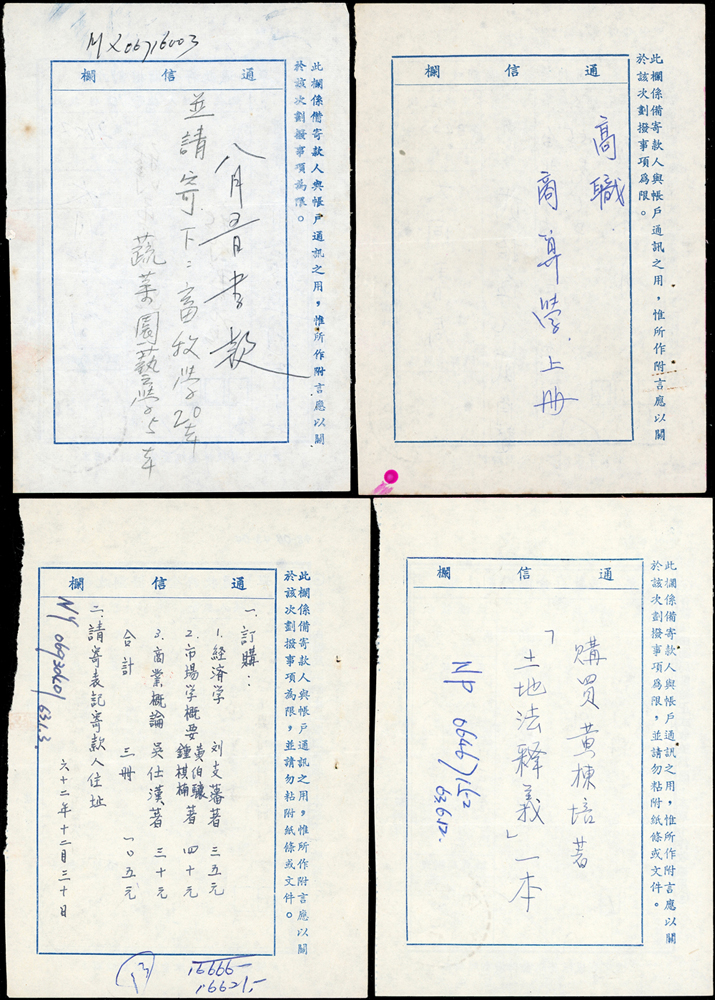 MX06716003
此欄係備寄款人與帳戶通訊之用，惟所作附言應以關
於該次劃撥事項為限。
通信欄
八月
書款
並請寄下：畜牧學20本
蔬菜園藝學5本
此欄係備寄款人與帳戶通訊之用，惟所作附言應以關
於該次劃撥事項為限。
通信欄
高職
商算學上冊
此欄係備寄款人與帳戶通訊之用，惟所作附言應以關
於該次劃撥事項為限，並請勿粘附紙條或文件。
通信欄
一、訂購：
1.經済学 刘支藩著 三五元
2.市場学概要 黃伯驤 鍾棋楠 著 四十元
3.商業概論 吳仕漢著 三十元
合計 三冊 一〇五元
二、請寄表記寄款人住址
六十二年十二月三十日
631.3.
16666-
16621-
此欄係備寄款人與帳戶通訊之用，惟所作附言應以關
於該次劃撥事項為限，並請勿粘附紙條或文件。
通信欄
購買黃棟培著
「土地法釋義」一本